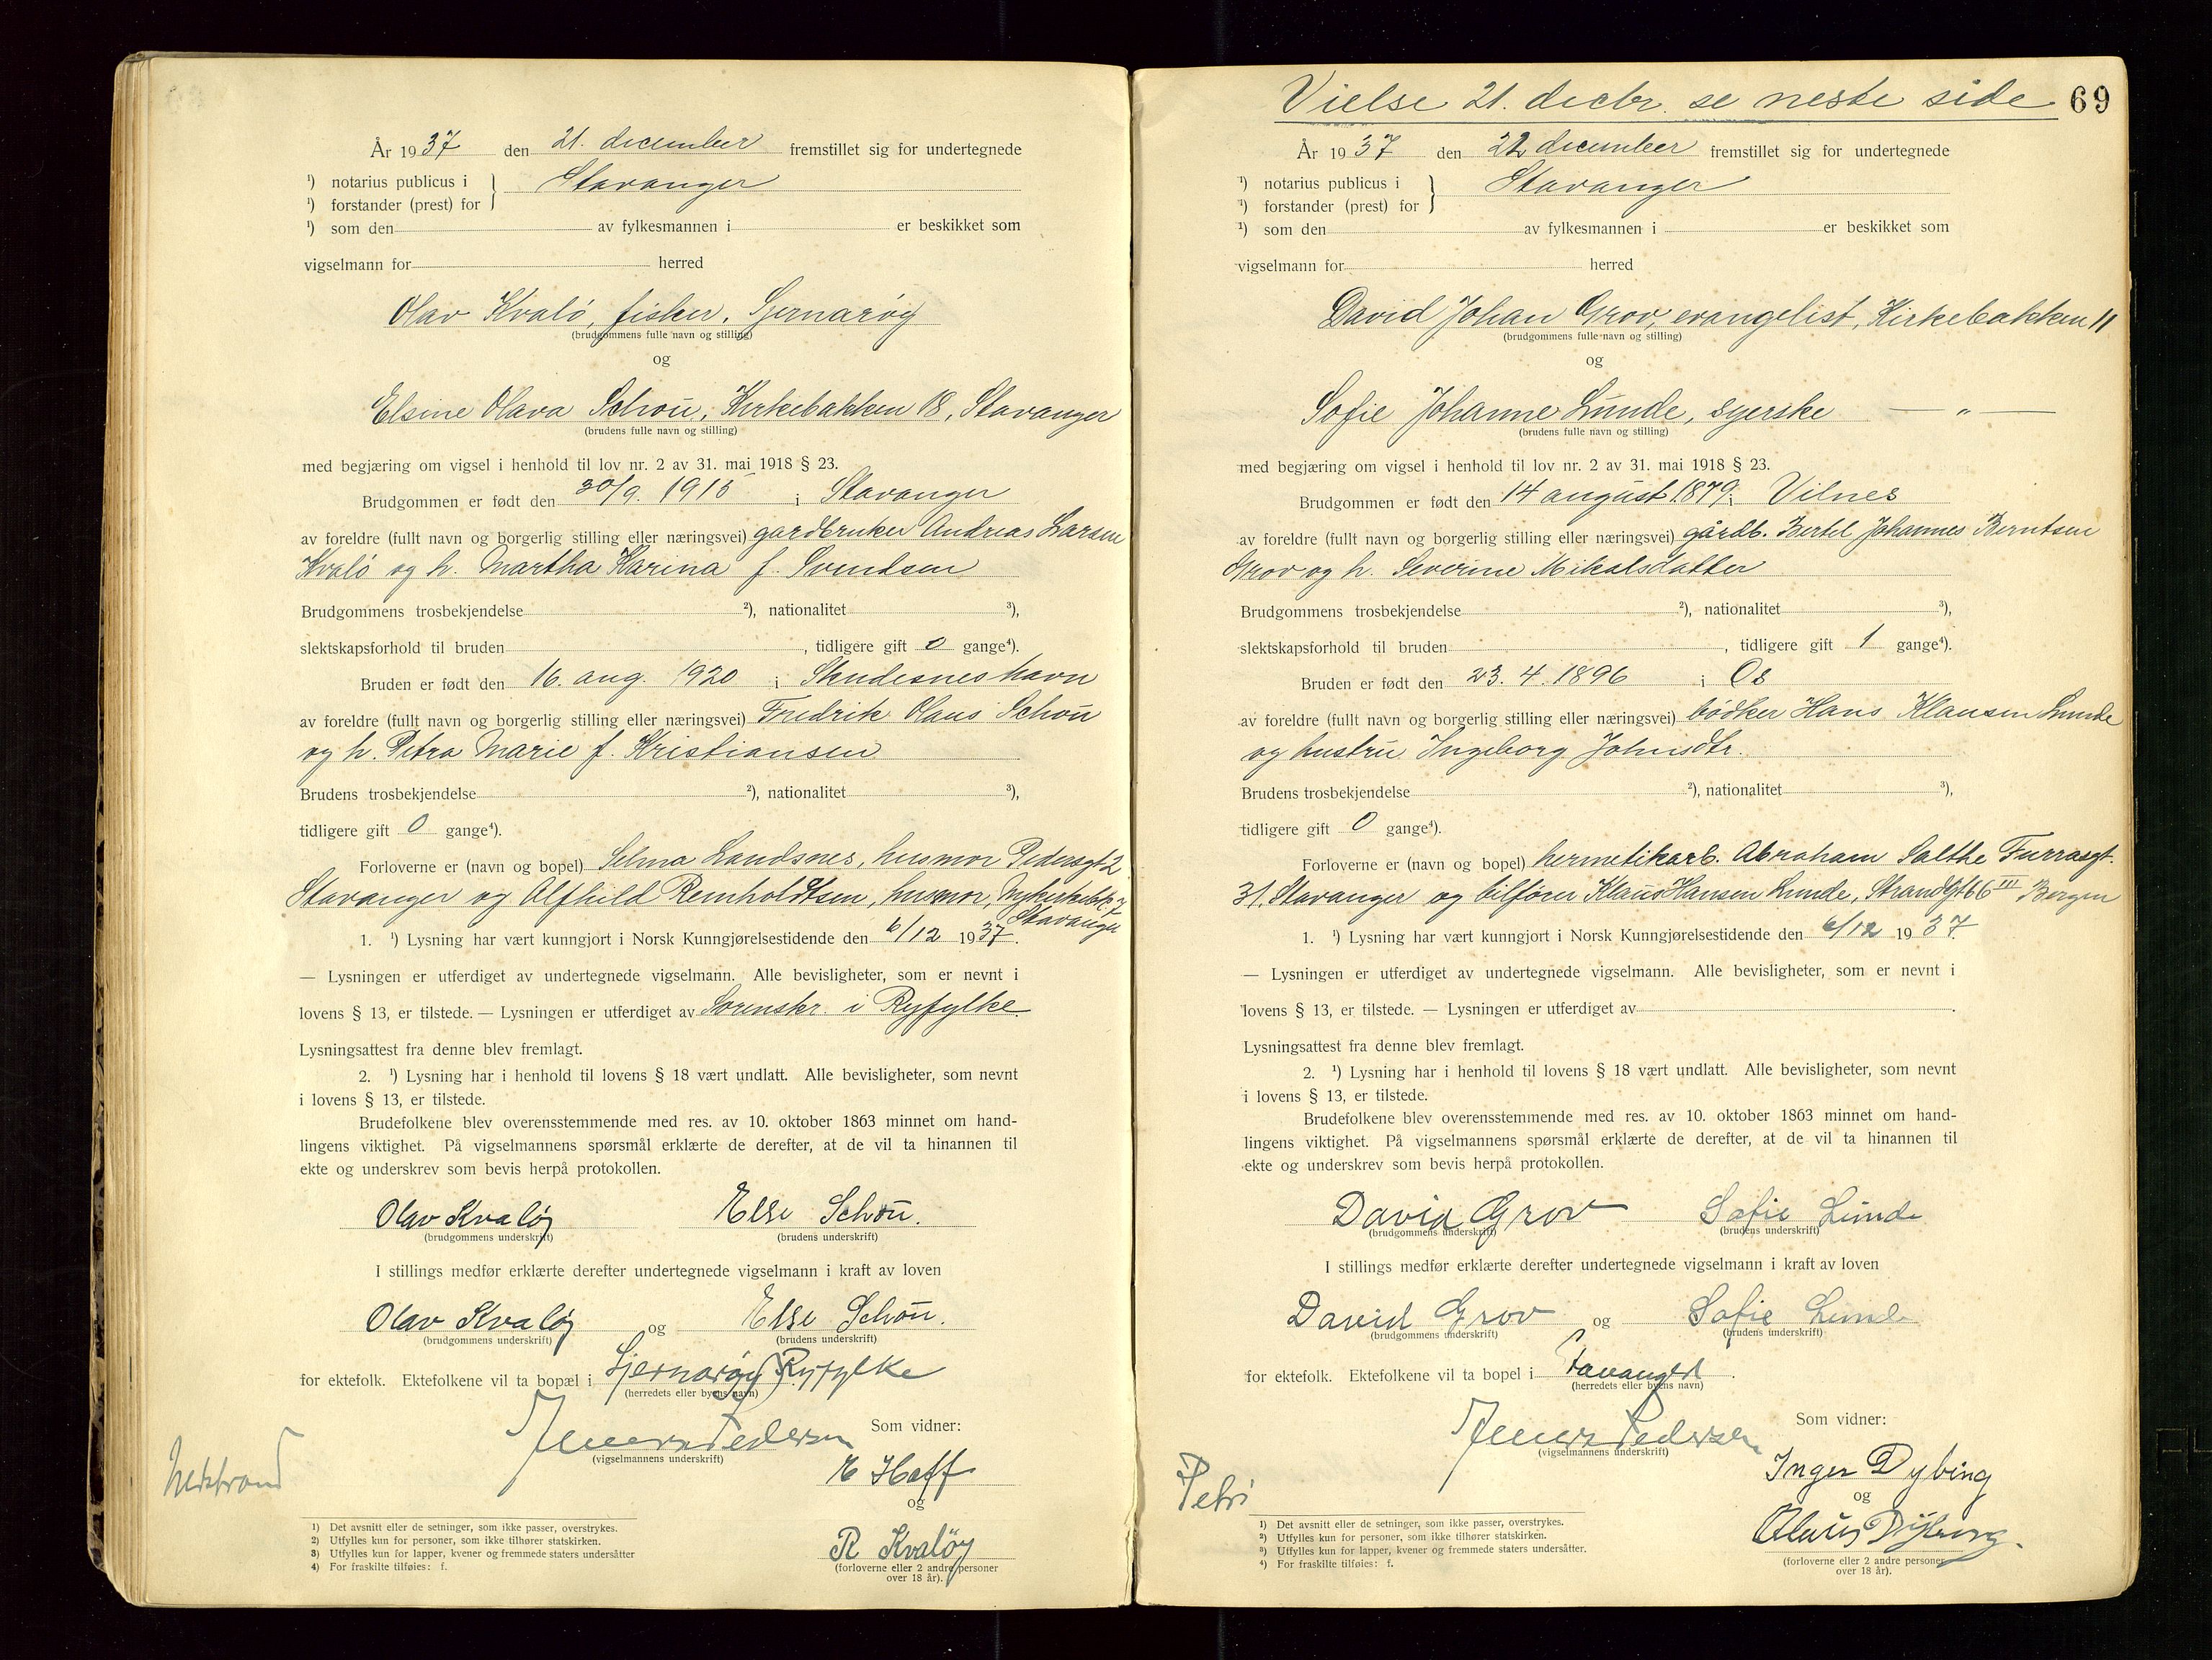 År 1937 den 21. december fremstillet sig for undertegnede
¹) notarius publicus i } Stavanger
¹) forstander (prest) for
¹) som den av fylkesmannen i er beskikket som
vigselmann for herred
Olav Kvalö, fisker, Sjernarøy
(brudgommens fulle navn og stilling)
og
Elsine Olava Schou, Kirkebakken 18, Stavanger
(brudens fulle navn og stilling)
med begjæring om vigsel i henhold til lov nr. 2 av 31. mai 1918 § 23.
Brudgommen er født den 30/9. 1915 i Stavanger
av foreldre (fullt navn og borgerlig stilling eller næringsvei) gardbruker Andreas Larsen
Kvalö og h. Martha Karina f. Svendsen
Brudgommens trosbekjendelse ²), nationalitet ³),
slektskapsforhold til bruden , tidligere gift 0 gange⁴).
Bruden er født den 16. aug. 1920 i Skudesneshavn
av foreldre (fullt navn og borgerlig stilling eller næringsvei) Fredrik Olaus Schou
og h. Petra Marie f. Kristiansen
Brudens trosbekjendelse ²), nationalitet ³),
tidligere gift 0 gange⁴).
Forloverne er (navn og bopel) Selma Landsnes, husmor Pedersgt 2
Stavanger og Alfhild Reinholdtsen, husmor,
Stavanger
1. ¹) Lysning har vært kunngjort i Norsk Kunngjørelsestidende den 6/12 1937.
— Lysningen er utferdiget av undertegnede vigselmann. Alle bevisligheter, som er nevnt i
lovens § 13, er tilstede. — Lysningen er utferdiget av Sorenskr. i Ryfylke.
Lysningsattest fra denne blev fremlagt.
2. ¹) Lysning har i henhold til lovens § 18 vært undlatt. Alle bevisligheter, som nevnt
i lovens § 13, er tilstede.
Brudefolkene blev overensstemmende med res. av 10. oktober 1863 minnet om hand-
lingens viktighet. På vigselmannens spørsmål erklærte de derefter, at de vil ta hinannen til
ekte og underskrev som bevis herpå protokollen.
Olav Kvaløy Else Schou.
(brudgommens underskrift) (brudens underskrift)
I stillings medfør erklærte derefter undertegnede vigselmann i kraft av loven
Olav Kvaløy og Else Schou.
(brudgommens underskrift) (brudens underskrift)
for ektefolk. Ektefolkene vil ta bopæl i Sjernarøy Ryfylke
(herredets eller byens navn)
Som vidner:
Pedersen
(vigselmannens underskrift)
Nedstrand
E Haff
og
R Kvaløy
(forloverne eller 2 andre personer
over 18 år).
1) Det avsnitt eller de setninger, som ikke passer, overstrykes.
2) Utfylles kun for personer, som ikke tilhører statskirken.
3) Utfylles kun for lapper, kvener og fremmede staters undersåtter
4) For fraskilte tilføies: f.
Vielse 21. decbr. se neste side 69
År 1937 den 22 december fremstillet sig for undertegnede
¹) notarius publicus i } Stavanger
¹) forstander (prest) for
¹) som den av fylkesmannen i er beskikket som
vigselmann for herred
David Johan Grov, evangelist, Kirkebakken 11
(brudgommens fulle navn og stilling)
og
Sofie Johanne Lunde, syerske — " —
(brudens fulle navn og stilling)
med begjæring om vigsel i henhold til lov nr. 2 av 31. mai 1918 § 23.
Brudgommen er født den 14 august 1879 i Vilnes
av foreldre (fullt navn og borgerlig stilling eller næringsvei) gårdb. Bertel Johannes Berntsen
Grov og h. Severine Mikalsdatter
Brudgommens trosbekjendelse ²), nationalitet ³),
slektskapsforhold til bruden , tidligere gift 1 gange⁴).
Bruden er født den 23. 4. 1896 i Os
av foreldre (fullt navn og borgerlig stilling eller næringsvei) bødker Hans Klausen Lunde
og hustru Ingeborg Johnsdtr.
Brudens trosbekjendelse ²), nationalitet ³),
tidligere gift 0 gange⁴).
Forloverne er (navn og bopel) hermetikarb. Abraham Salthe Furrasgt.
31, Stavanger og bilfører Klaus Hansen Lunde, Strandgt 66 III Bergen
1. ¹) Lysning har vært kunngjort i Norsk Kunngjørelsestidende den 6/12 1937.
— Lysningen er utferdiget av undertegnede vigselmann. Alle bevisligheter, som er nevnt i
lovens § 13, er tilstede. — Lysningen er utferdiget av .
Lysningsattest fra denne blev fremlagt.
2. ¹) Lysning har i henhold til lovens § 18 vært undlatt. Alle bevisligheter, som nevnt
i lovens § 13, er tilstede.
Brudefolkene blev overensstemmende med res. av 10. oktober 1863 minnet om hand-
lingens viktighet. På vigselmannens spørsmål erklærte de derefter, at de vil ta hinannen til
ekte og underskrev som bevis herpå protokollen.
David Grov Sofie Lunde
(brudgommens underskrift) (brudens underskrift)
I stillings medfør erklærte derefter undertegnede vigselmann i kraft av loven
David Grov og Sofie Lunde
(brudgommens underskrift) (brudens underskrift)
for ektefolk. Ektefolkene vil ta bopel i Stavanger.
(herredets eller byens navn)
Som vidner:
Pedersen
(vigselmannens underskrift)
Petri
Inger Dybing
og
Olaus Dybing.
(forloverne eller 2 andre personer
over 18 år).
1) Det avsnitt eller de setninger, som ikke passer, overstrykes.
2) Utfylles kun for personer, som ikke tilhører statskirken.
3) Utfylles kun for lapper, kvener og fremmede staters undersåtter.
4) For fraskilte tilføies: f.